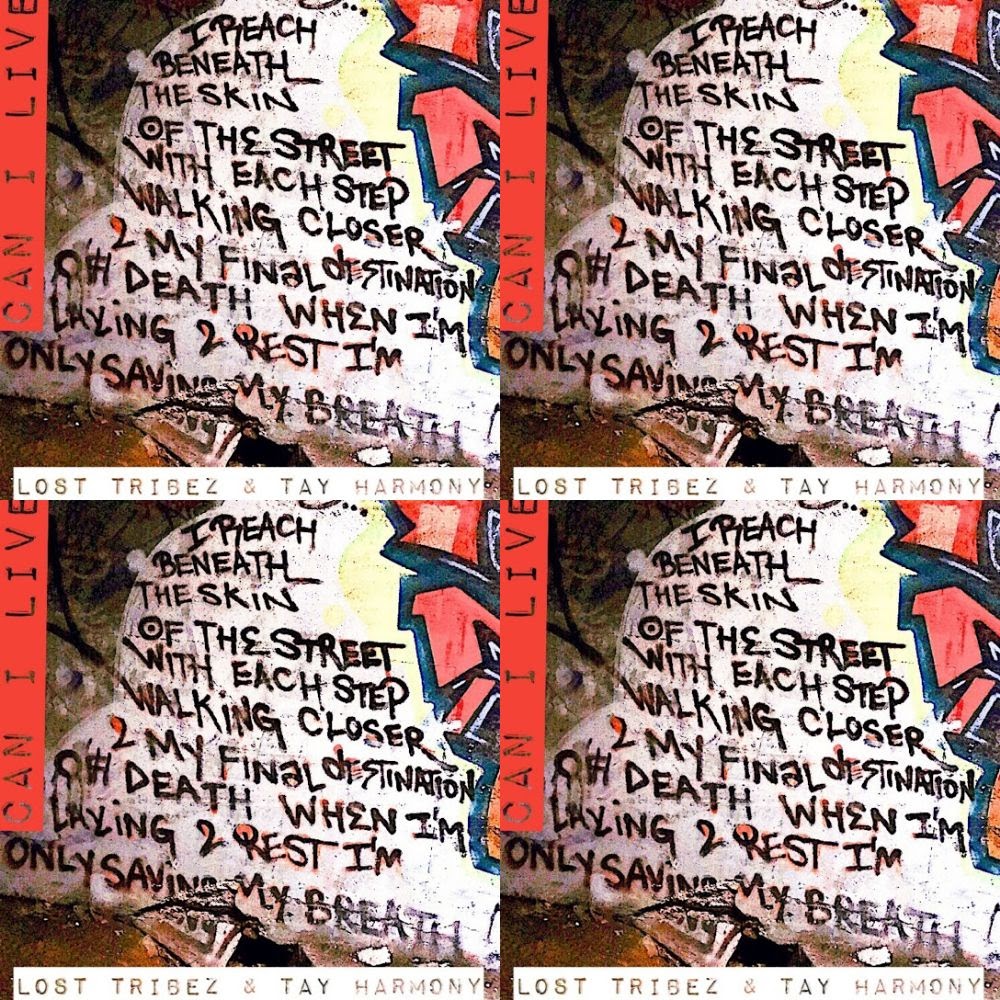 CAN I LIVE
I REACH
BENEATH
THE SKIN
OF THE STREET
WITH EACH STEP
WALKING CLOSER
2 MY FINAL DESTINATION
DEATH WHEN I'M
LAYING 2 REST I'M
ONLY SAVING MY BREATH
LOST TRIBEZ & TAY HARMONY
CAN I LIVE
I REACH
BENEATH
THE SKIN
OF THE STREET
WITH EACH STEP
WALKING CLOSER
2 MY FINAL DESTINATION
DEATH WHEN I'M
LAYING 2 REST I'M
ONLY SAVING MY BREATH
LOST TRIBEZ & TAY HARMONY
CAN I LIVE
I REACH
BENEATH
THE SKIN
OF THE STREET
WITH EACH STEP
WALKING CLOSER
2 MY FINAL DESTINATION
DEATH WHEN I'M
LAYING 2 REST I'M
ONLY SAVING MY BREATH
LOST TRIBEZ & TAY HARMONY
CAN I LIVE
I REACH
BENEATH
THE SKIN
OF THE STREET
WITH EACH STEP
WALKING CLOSER
2 MY FINAL DESTINATION
DEATH WHEN I'M
LAYING 2 REST I'M
ONLY SAVING MY BREATH
LOST TRIBEZ & TAY HARMONY